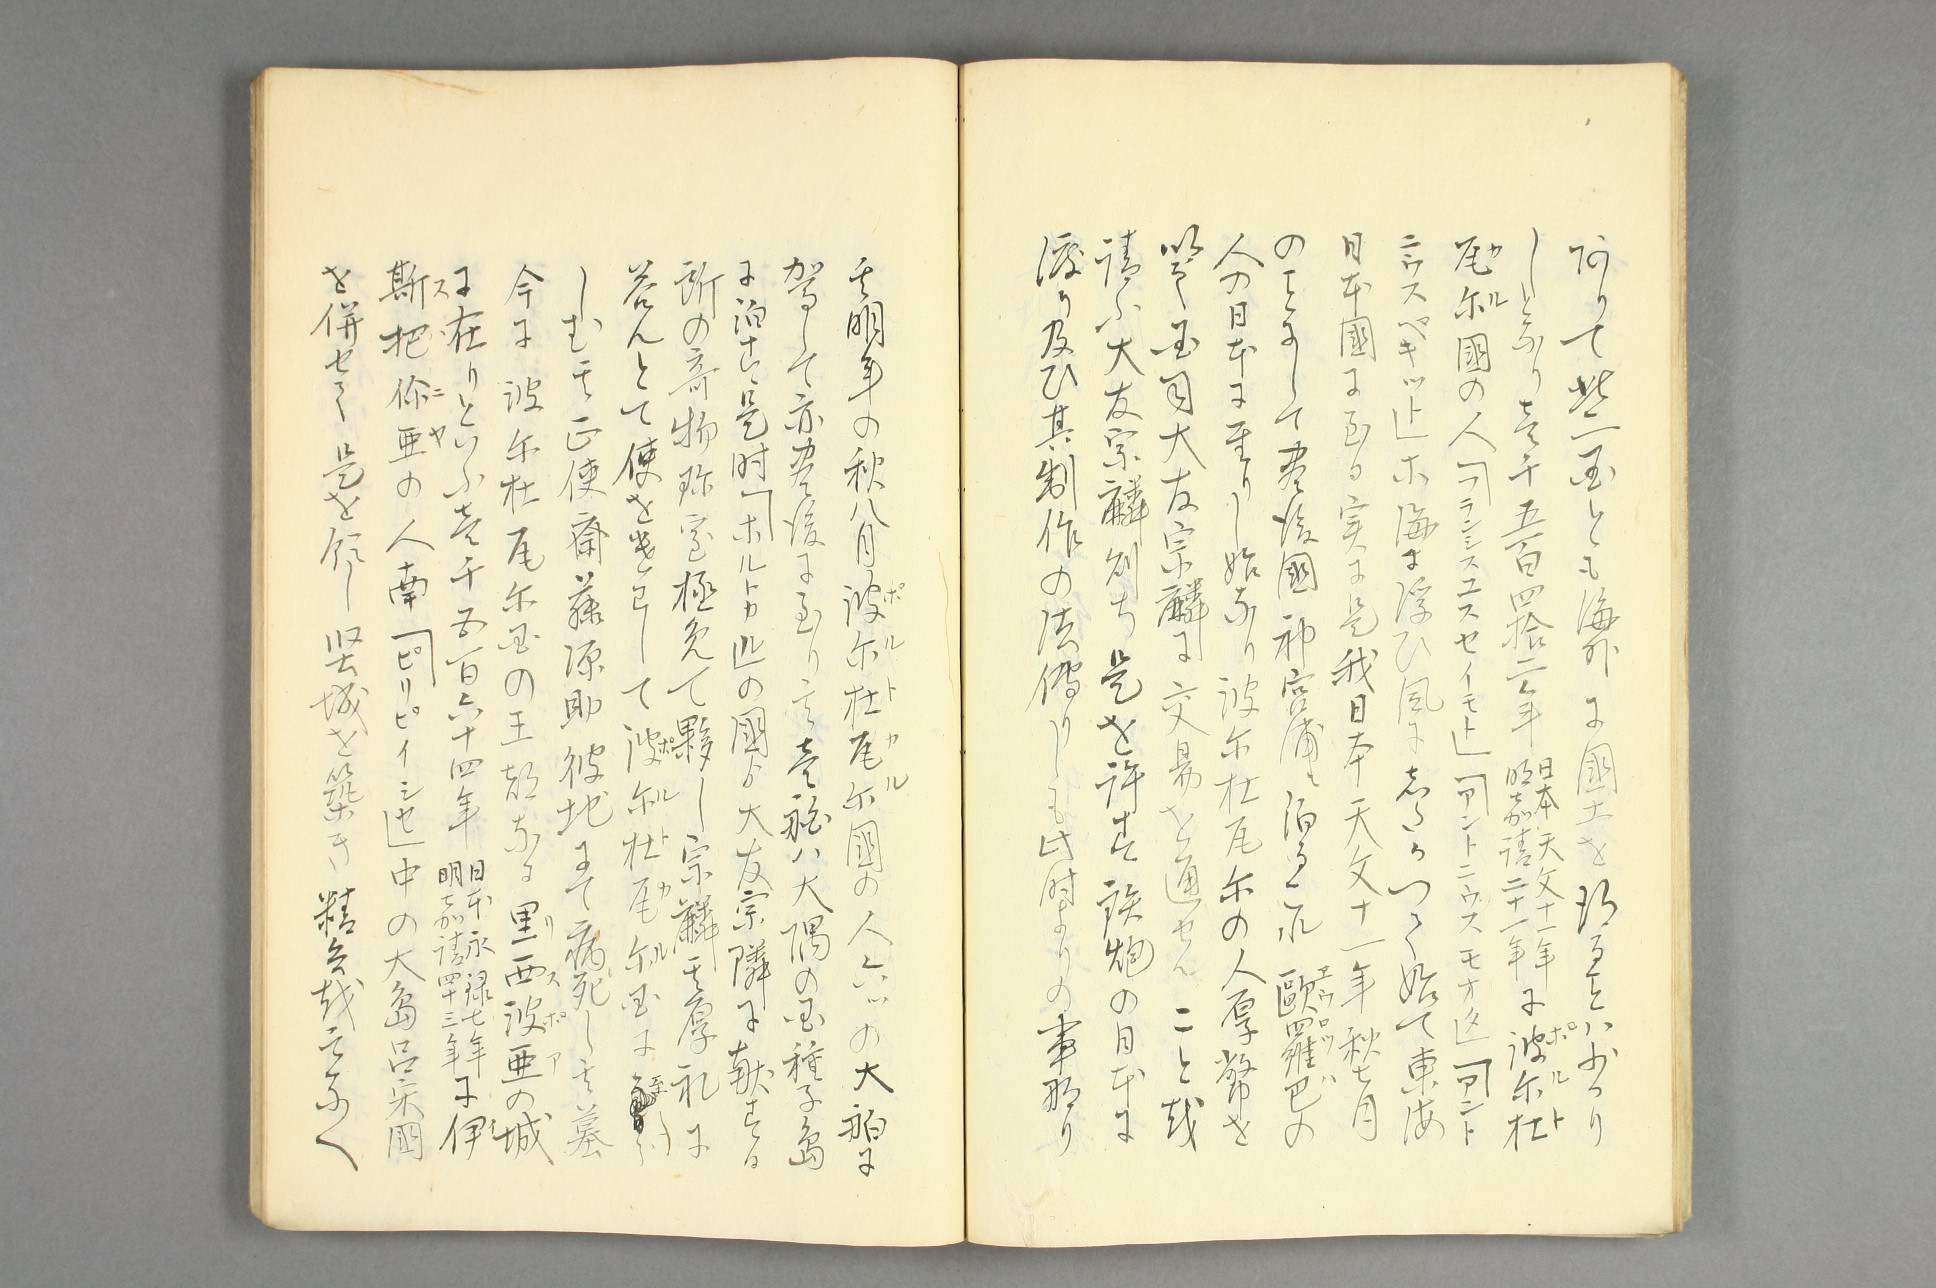 ありて此二国とも海外に國土を得ることハ少〻り
しとなり壱千五百四拾二年日本天文十一年明嘉靖二十一年に波尓杜
尾尓國の人「フランシスユスセイモト」「アントニウスモオタ」「アント
ニウスペキツト」ホ海に浮ひ風に
日本國に至る実に是我日本天文十一年秋七月
のことにして豊後國神宮浦に泊る是欧羅巴の
人の日本に至りし始なり波尓杜尾尓の人厚幣を
以て国司大友宗麟に交易を通せんこと越
請ふ大友宗麟則ち是を許す鉄炮の日本に
渡り及ひ其制作の法傳りしも此時よりの事那り
其明年の秋八月波尓杜尾尓國の人六ツの大舶に
駕して亦豊後に至り其壱艘ハ大隅の国種子島
に泊す是時「ホルトカル」の國より大友宗麟に献する
所の奇物珍宝極免て夥し宗麟其厚礼に
答んとて使を遣して波尓杜尾尓国に至
しむ其正使齋藤源助彼地にて病死し其墓
今に波尓杜尾尓国の王都なる里西波亜の城
に在りといふ壱千五百六十四年日本永禄七年明嘉靖四十三年に伊
斯把你亜の人南「ピリピイシセ」中の大島呂宋國
を併せて是を領し堅城を築き精兵越